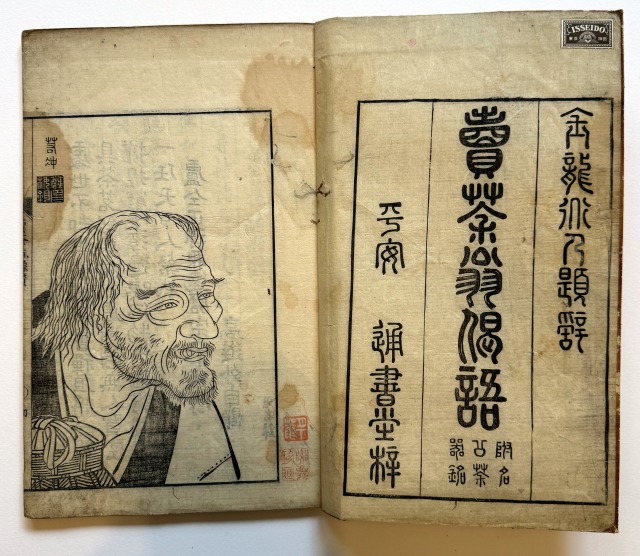 ISSEIDO
金龍道人題辭
賣茶翁偈語
附名
公茶
器銘
平安 通書堂梓
若冲